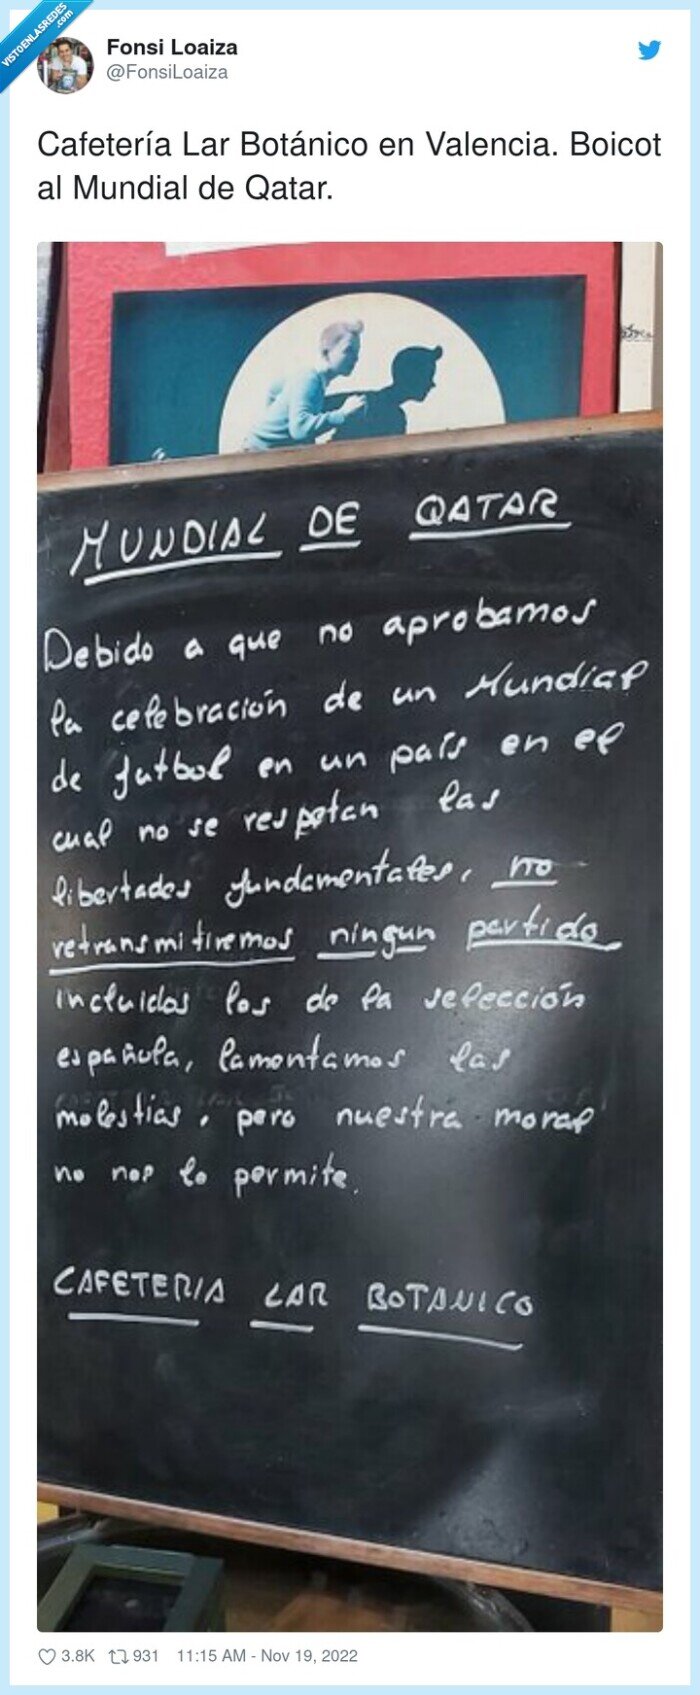 VISTOENLASREDES
.com
Fonsi Loaiza
@FonsiLoaiza
Cafetería Lar Botánico en Valencia. Boicot
al Mundial de Qatar.
MUNDIAL DE QATAR
Debido a que no aprobamos
la celebración de un Mundial
de futbol en un país en el
cual no se respetan las
libertades fundamentales, no
retransmitiremos ningun partido
incluidos los de la selección
española, lamentamos las
molestias, pero nuestra moral
no nos lo permite.
CAFETERIA LAR BOTANICO
3.8K 931 11:15 AM - Nov 19, 2022